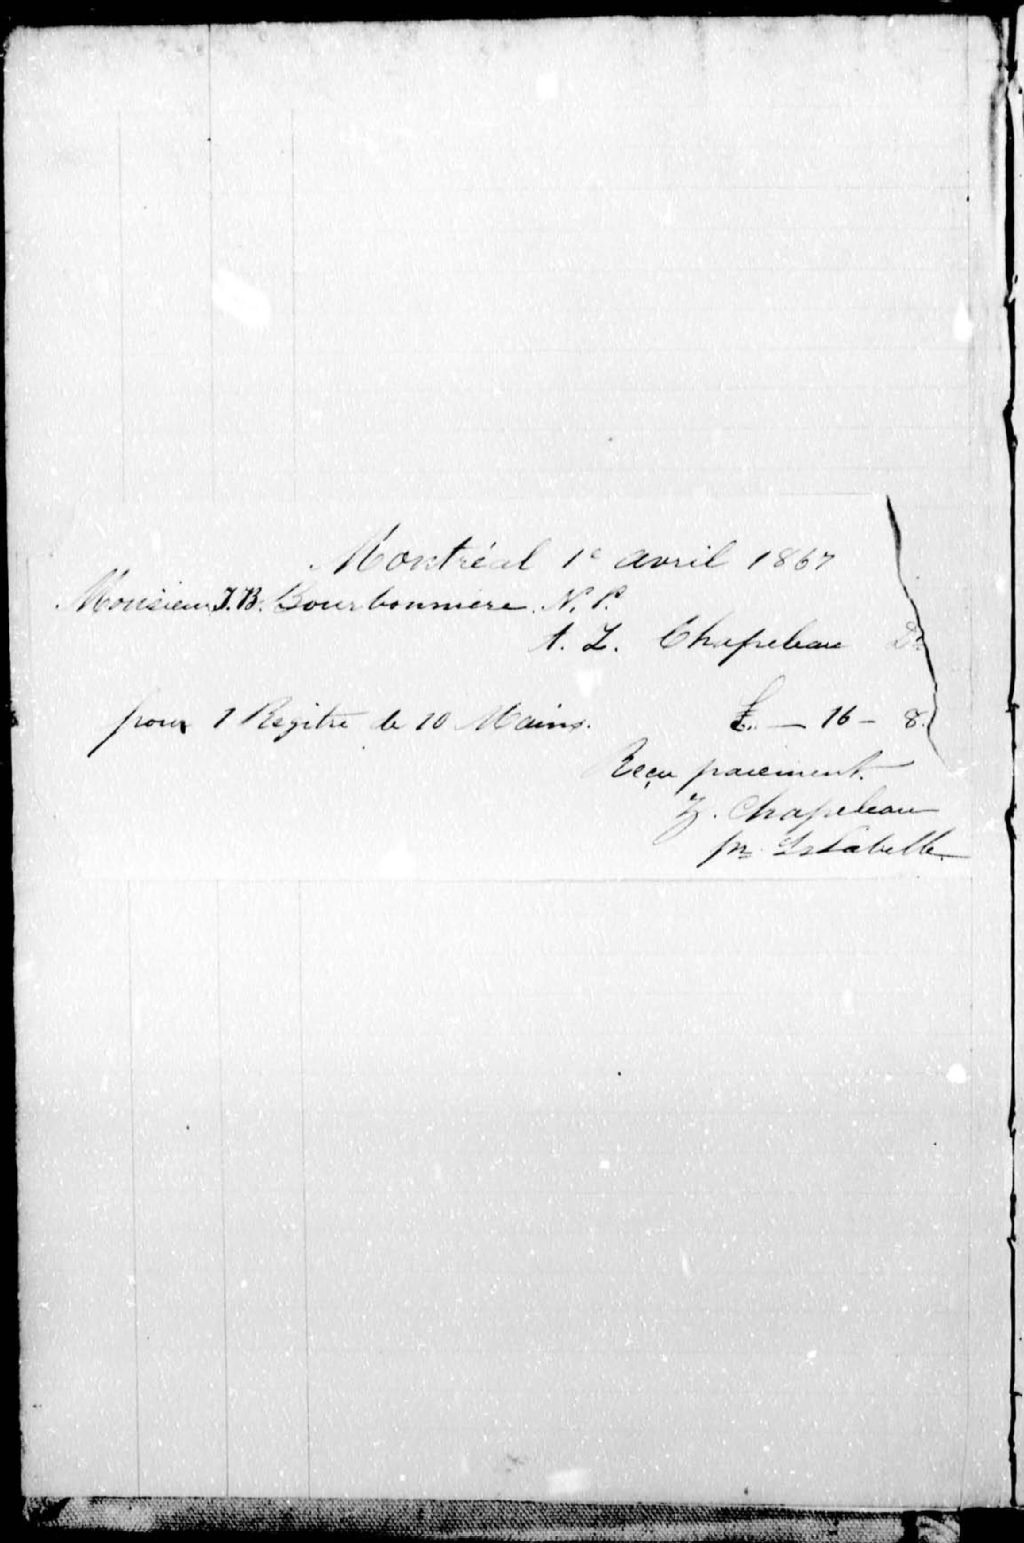 Montréal 1e avril 1867
Monsieur J.B. Bourbonnière N.P.
A. Z. Chapeleau Dr
pour 1 Regitre de 10 Mains. £. — 16 — 8.
Reçu paiement.
Z. Chapeleau
pr Labelle